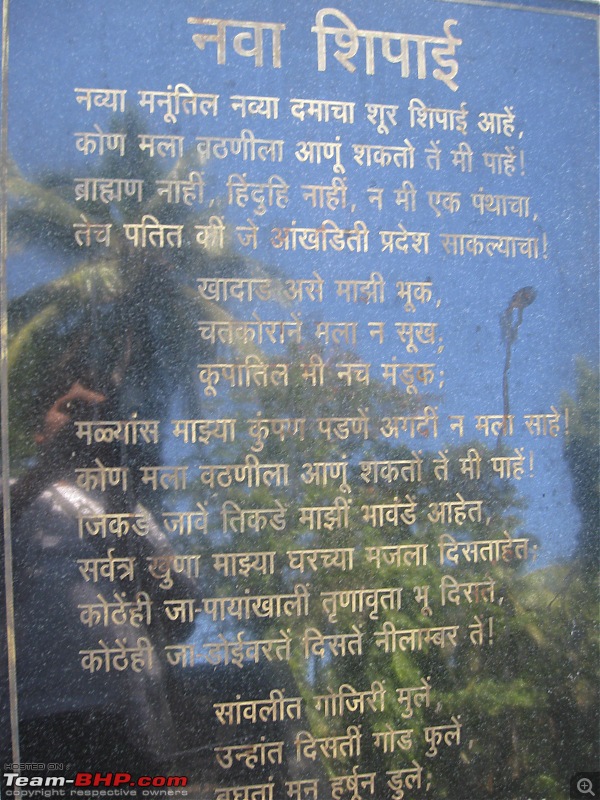 नवा शिपाई
नव्या मनूंतिल नव्या दमाचा शूर शिपाई आहें,
कोण मला वठणीला आणूं शकतो तें मी पाहें!
ब्राह्मण नाहीं, हिंदुहि नाहीं, न मी एक पंथाचा,
तेच पतित कीं जे आंखडिती प्रदेश साकल्याचा!
खादाड असे माझी भूक,
चतकोरानें मला न सूख;
कूपातिल मी नच मंडूक;
मळ्यांस माझ्या कुंपण पडणें अगदीं न मला साहे!
कोण मला वठणीला आणूं शकतों तें मी पाहें!
जिकडे जावें तिकडे माझीं भावंडें आहेत,
सर्वत्र खुणा माझ्या घरच्या मजला दिसताहेत;
कोठेंही जा-पायांखालीं तृणावृता भू दिसते,
कोठेंही जा-डोईवरतें दिसतें नीलाम्बर ते!
सांवलींत गोजिरीं मुलें,
उन्हांत दिसतीं गोड फुलें
बघतां मन हर्षून डुले,
HOSTED ON
Team-BHP.com
copyright respective owners